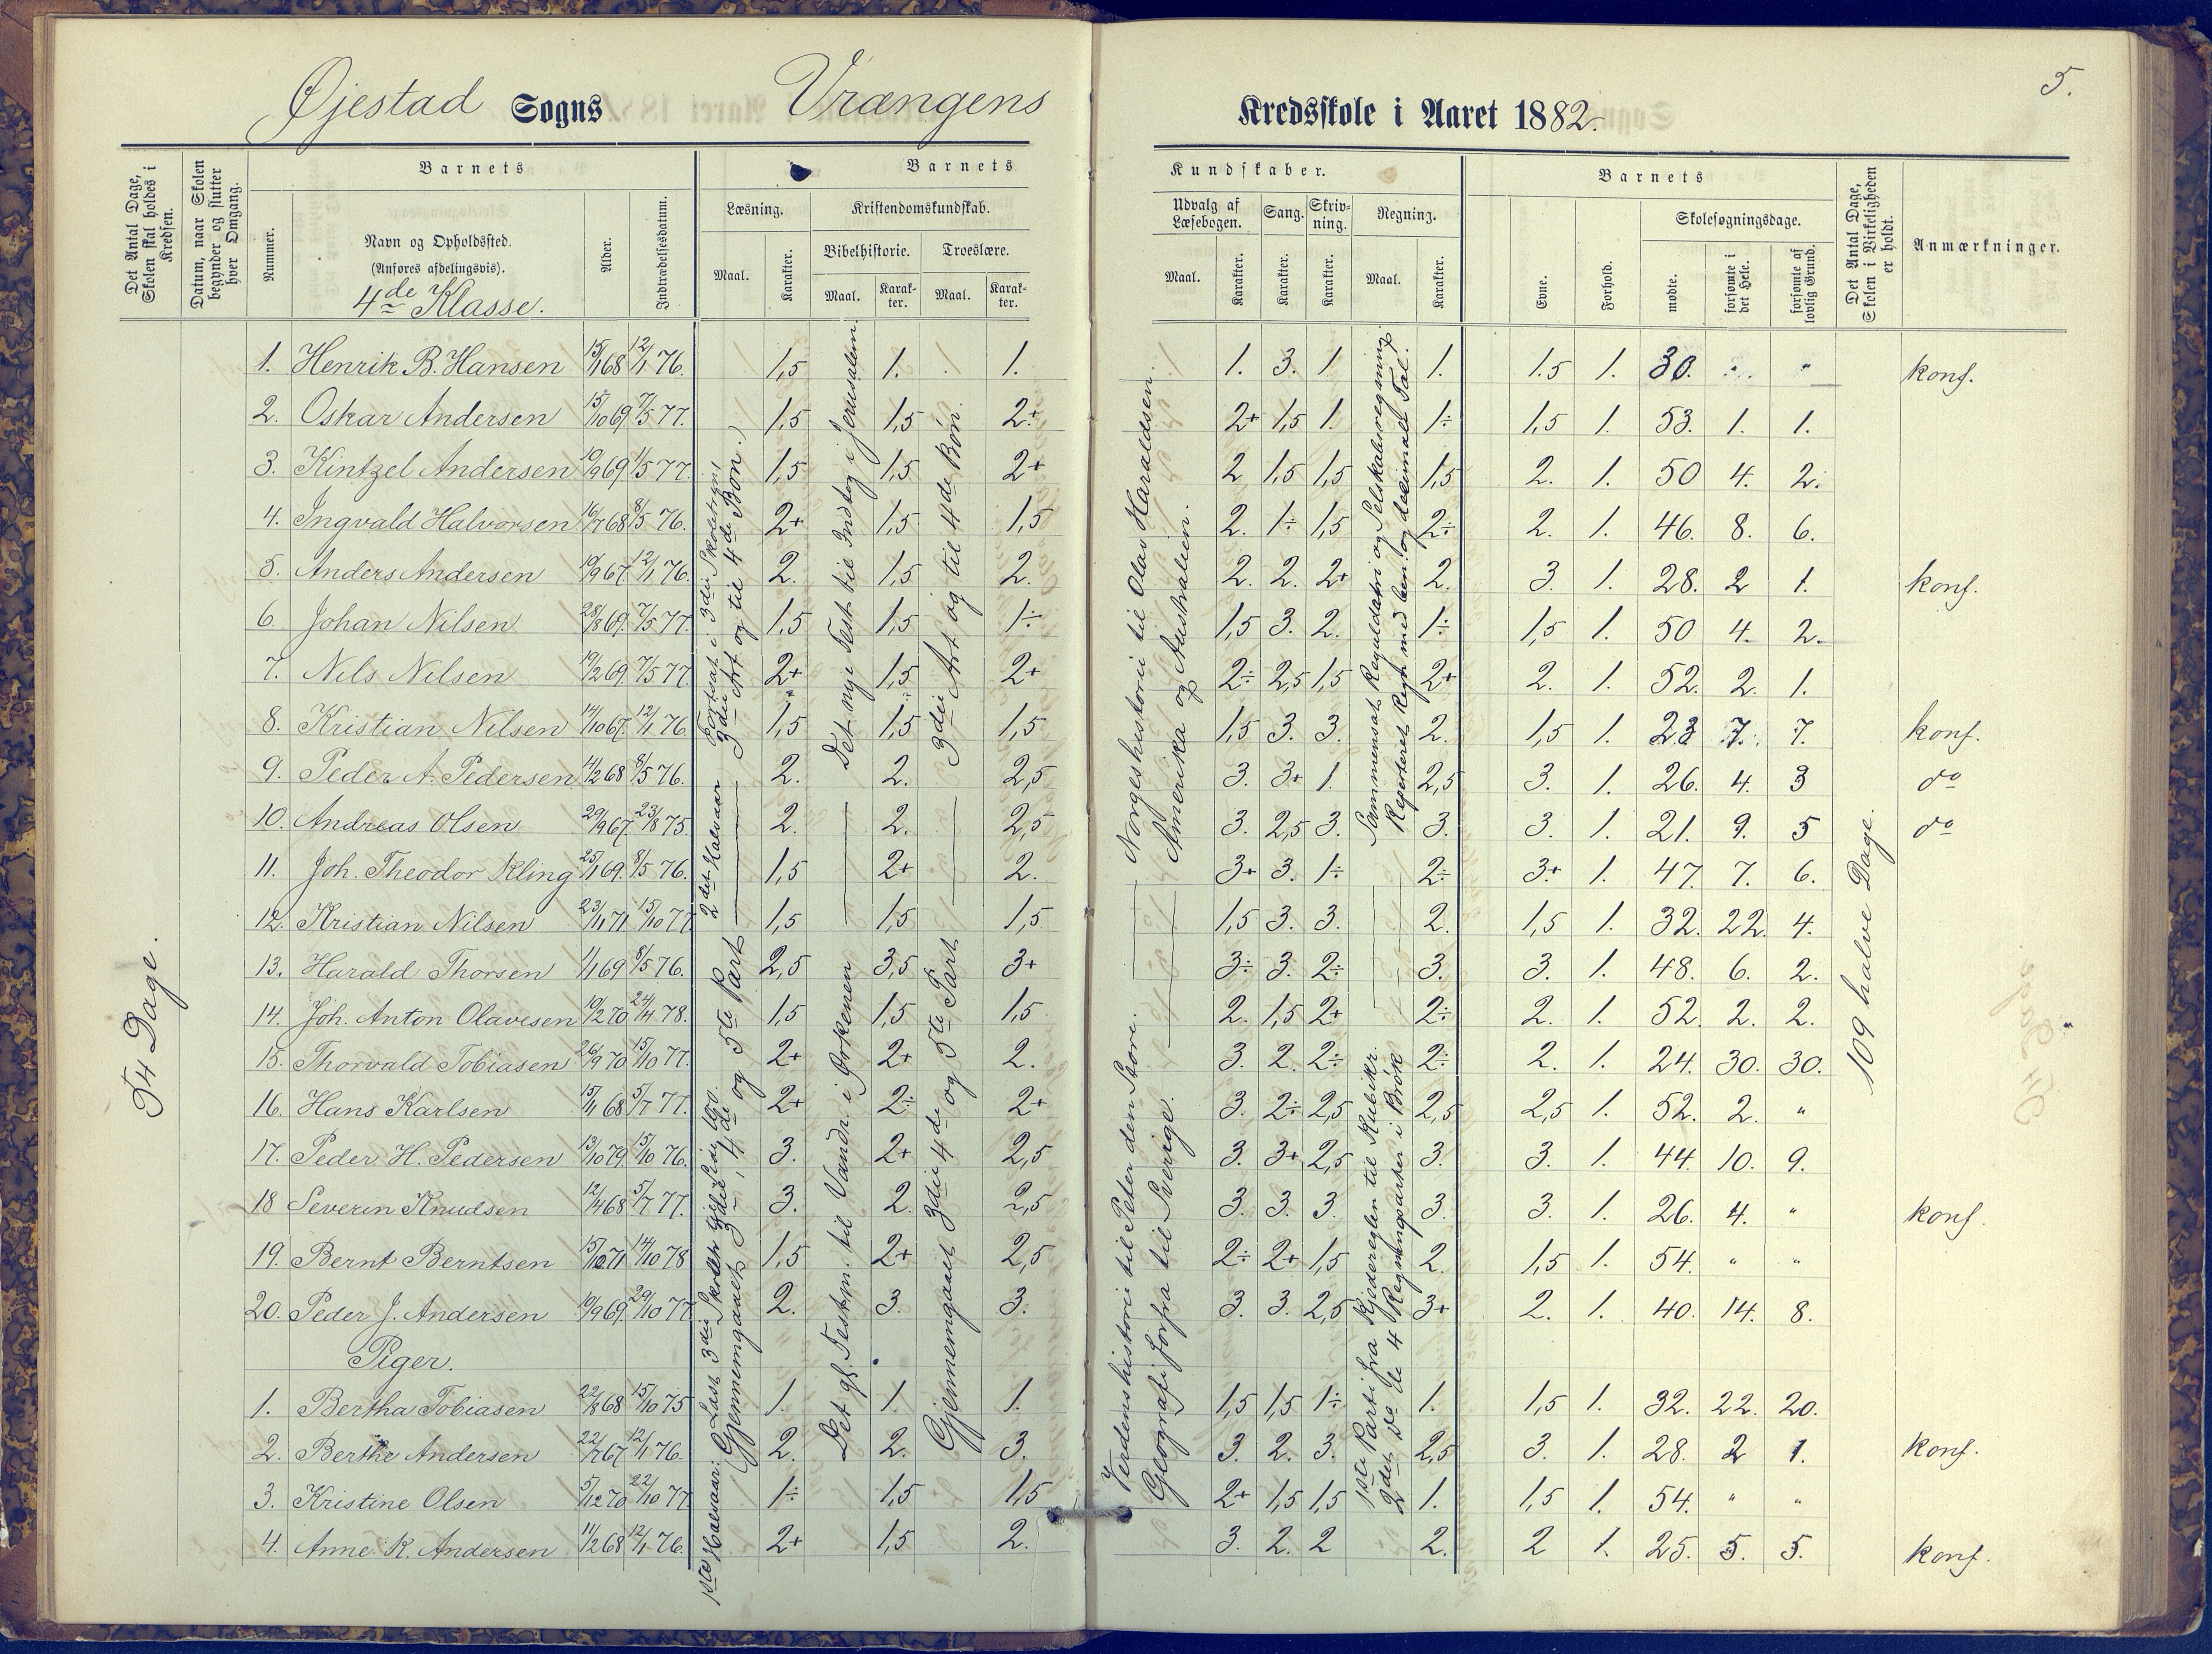 5.
Øjestad Sogns Vrængens Kredsskole i Aaret 1882.
Det Antal Dage, Skolen skal holdes i Kredsen.
Datum, naar Skolen begynder og slutter hver Omgang.
Barnets
Nummer.
Navn og Opholdssted.
(Anføres afdelingsvis).
4de Klasse.
Alder.
Indtrædelsesdatum.
Barnets Kundskaber.
Læsning.
Maal.
Karakter.
Kristendomskundskab.
Bibelhistorie.
Maal.
Karakter.
Troeslære.
Maal.
Karakter.
Udvalg af Læsebogen.
Maal.
Karakter.
Sang.
Karakter.
Skrivning.
Karakter.
Regning.
Maal.
Karakter.
Barnets
Evne.
Forhold.
Skolesøgningsdage.
mødte.
forsømte i det Hele.
forsømte af lovlig Grund.
Det Antal Dage, Skolen i Virkeligheden er holdt.
Anmærkninger.
54 Dage.
1. Henrik B. Hansen 15/1 68 12/1 76. 1,5 1. 1. 1. 3. 1 1. 1.5 1. 30. " " konf.
2. Oskar Andersen 15/10 69. 7/5 77. 1,5 1,5 2+ 2+ 1,5 1. 1÷ 1,5 1. 53. 1. 1.
3. Kintzel Andersen 10/9 69 1/5 77. 1,5 1,5 2+ 2 1,5 1,5 1,5 2. 1. 50 4. 2.
4. Ingvald Halvorsen 16/7 68 8/5 76. 2+ 1,5 1,5 2. 1÷ 1,5 2÷ 2. 1. 46. 8. 6.
5. Anders Andersen 19/9 67. 12/1 76. 2. 1,5 2. 2. 2. 2+ 2. 3. 1. 28. 2 1. konf.
6. Johan Nilsen 28/8 69. 7/5 77. 1,5 1,5 1÷ 1,5 3. 2. 1÷ 1,5 1. 50 4. 2.
7. Nils Nilsen 19/2 69. 7/5 77 2+ 1,5 2+ 2÷ 2,5 1,5 2+ 2. 1. 52. 2. 1.
8. Kristian Nilsen 14/10 67. 12/1 76. 1,5 1,5 1,5 1,5 3. 3. 2. 1,5 1. 23 7. 7. konf.
9. Peder A. Pedersen 4/2 68 8/5 76. 2. 2. 2,5 3. 3+ 1. 2,5 3. 1. 26. 4. 3 do
10. Andreas Olsen 29/9 67. 23/8 75. 2. 2. 2,5 3. 2,5 3. 3. 3. 1. 21. 9. 5 do
11. Joh. Theodor Kling 25/1 69. 8/5 76. 1,5 2+ 2. 3+ 3. 1÷ 2÷ 3+ 1. 47. 7. 6.
12. Kristian Nilsen 23/11 71 15/10 77 1,5 1,5 1,5 1,5 3. 3. 2. 1,5 1. 32. 22. 4.
13. Harald Thorsen 1/1 69 8/5 76. 2,5 3,5 3+ 3÷ 3. 2÷ 3. 3. 1. 48. 6. 2.
14. Joh. Anton Olavesen 19/2 70 24/4 78. 1,5 1,5 1,5 2. 1,5 2+ 2÷ 2. 1. 52. 2. 2.
15. Thorvald Tobiasen 26/9 70 15/10 77. 2+ 2+ 2. 3. 2. 2÷ 2÷ 2. 1. 24. 30. 30.
16. Hans Karlsen 15/1 68 5/7 77. 2+ 2÷ 2+ 3. 2÷ 2,5 2,5 2,5 1. 52. 2. "
17. Peder H. Pedersen 13/10 79. 15/10 76. 3. 2+ 2,5 3. 3+ 2,5 3. 3. 1. 44. 10. 9.
18 Severin Knudsen 12/4 68 5/7 77. 3. 2. 2,5 3. 3. 3. 3. 3. 1. 26. 4. " konf.
19. Bernt Berntsen 15/10 71 14/10 78 1,5 2+ 2,5 2÷ 2+ 1,5 2. 1,5 1. 54. " "
20. Peder J. Andersen 10/9 69. 29/10 77 2. 3. 3. 3. 3. 2,5 3+ 2. 1. 40. 14. 8.
Piger.
1. Bertha Tobiasen 22/8 68 15/10 75 1. 1. 1. 1,5 1,5 1÷ 1. 1,5 1. 32. 22. 20.
2. Berthe Andersen 22/7 67 12/1 76. 2. 2. 3. 3. 2. 3. 2,5 3. 1. 28. 2 1. konf.
3. Kristine Olsen 5/12 70 22/10 77 1÷ 1,5 1,5 2+ 1,5 1,5 1. 1,5 1. 54. " "
4. Anne K. Andersen 11/2 68 12/1 76. 2+ 1,5 2. 3. 2. 2 2. 2 1. 25. 5. 5. konf.
1ste Halvaar: Læst 3die
2det Halvaar Fortsat i 3die Skoletrin
Gjennemgaaet 3die, 4de og 5te Part
3die Art og til 4de Bøn.)
Det gl. Testm. til Vandr. i Ørkenen
Det nye Test. til Indtog i Jerusalem.
Gjennemgaaet 3die 4de og 5te Part
3die Art og til 4de Bøn.
Verdenshistorie til Peter den Store.
Norgeshistorie til Olav Haraldsen.
Geografi forfra til Sverige.
Amerika og Australien.
1ste Parti fra Kjæderegelen til Kubikr.
Sammensat Reguladetri og Selskabsregning
2det Do. de 4 Regningsarter i Brøk
Repeteret Regn. med ben. og decimalt Tal.
109 halve Dage.